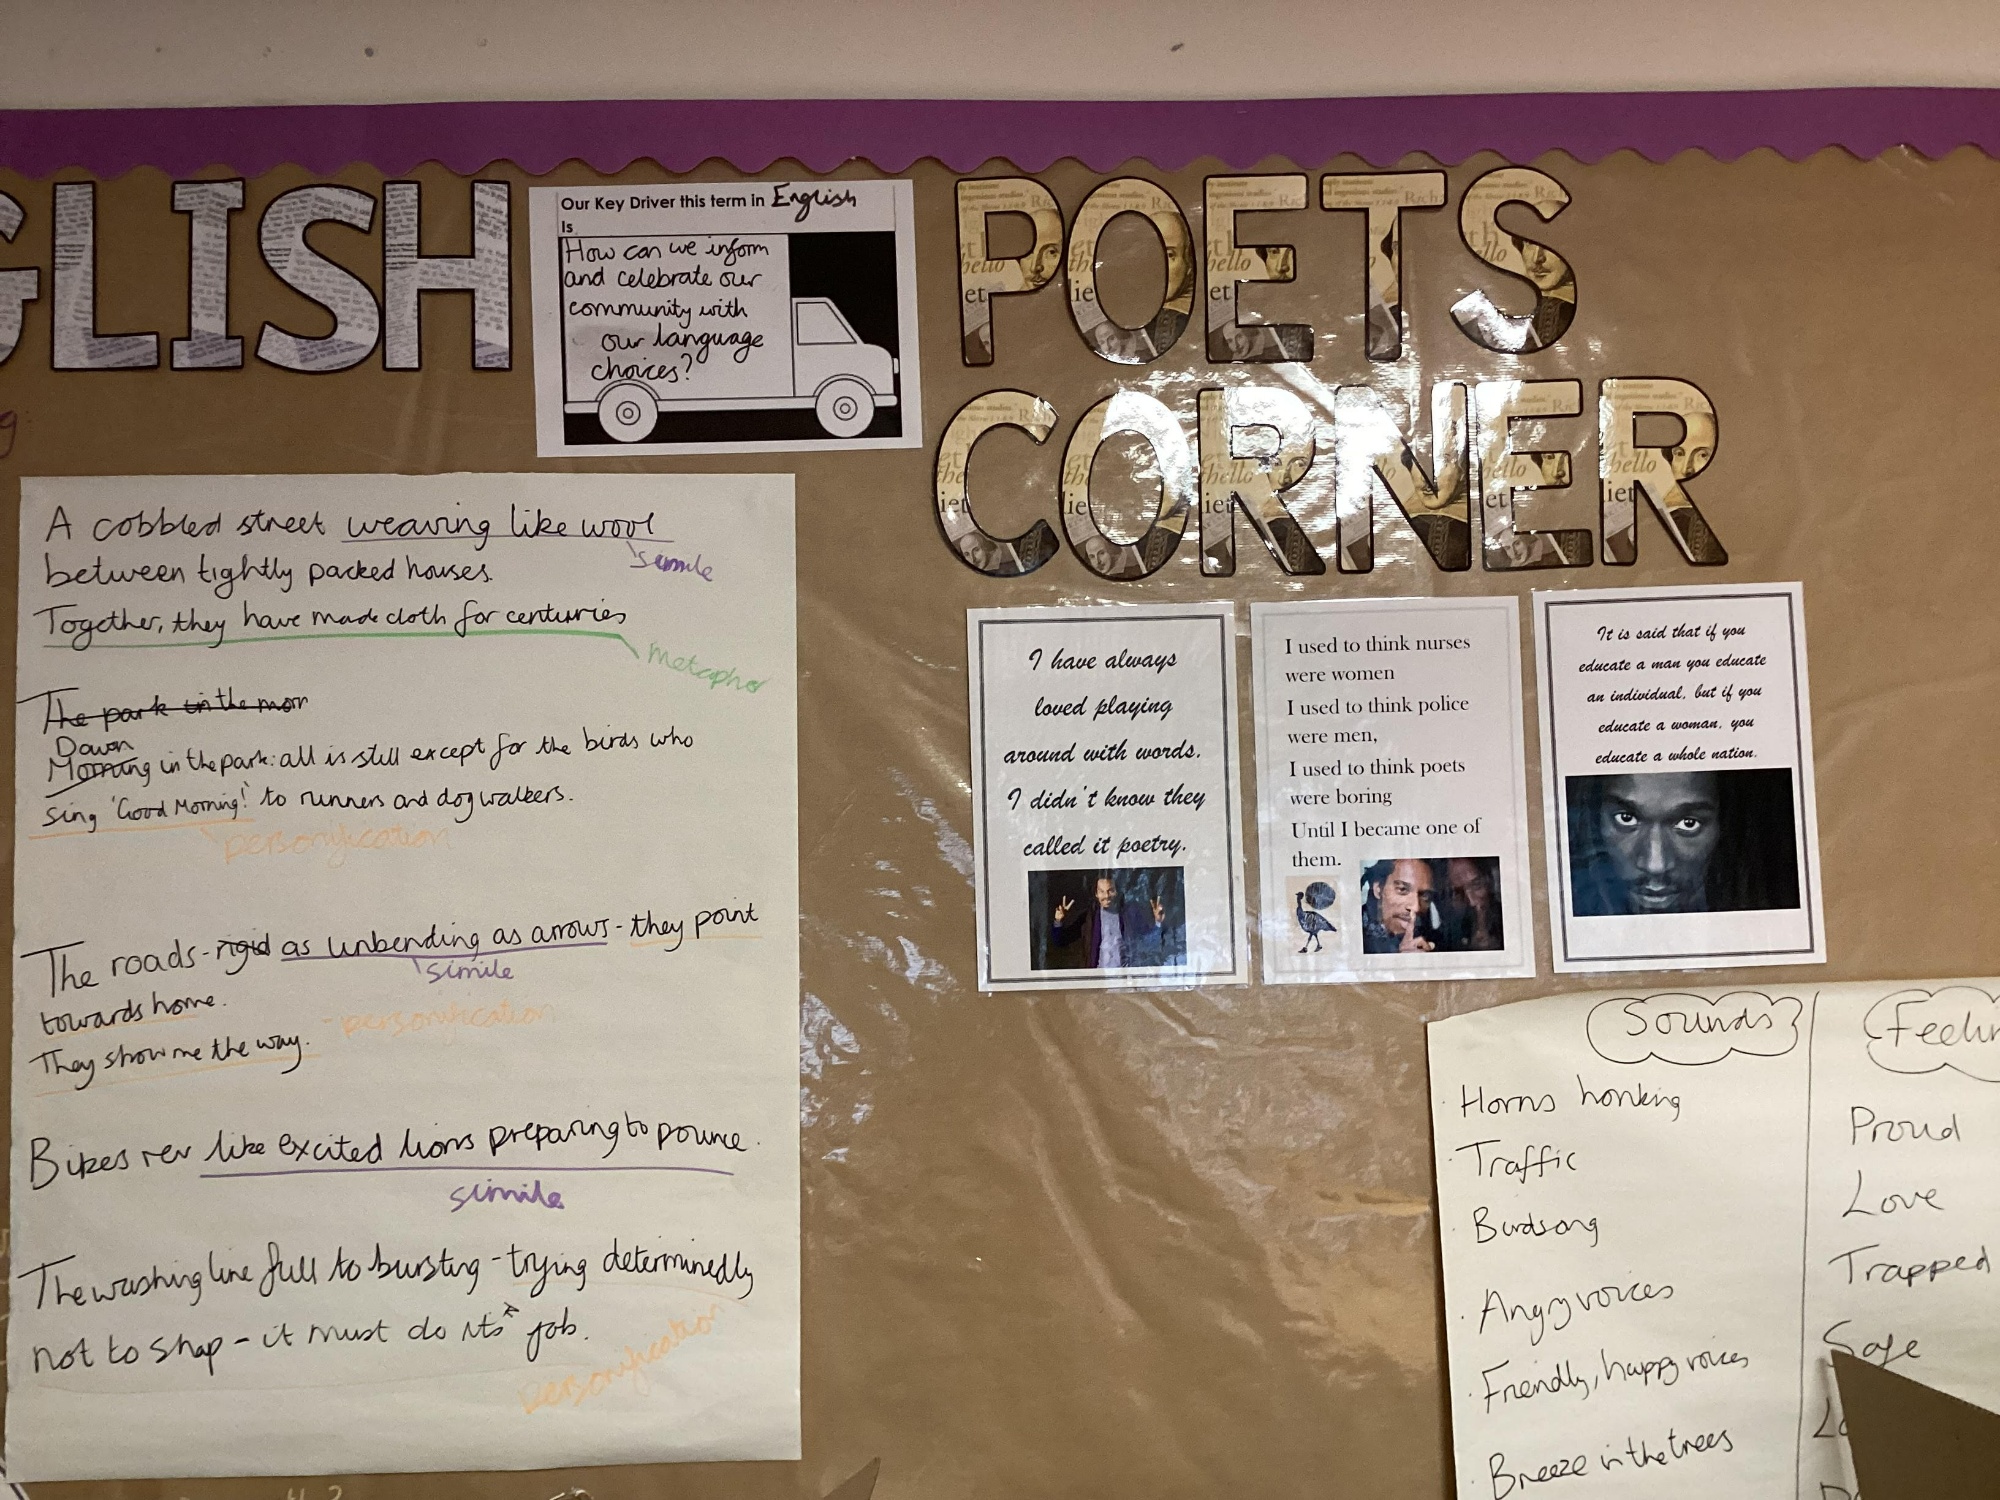 GLISH
Our Key Driver this term in English
is
How can we inform
and celebrate our
community with
our language
choices?
POETS
CORNER
A cobbled street weaving like wool
simile
between tightly packed houses.
Together, they have made cloth for centuries
metaphor
The park in the mor
Dawn
Morning in the park: all is still except for the birds who
sing 'Good Morning!' to runners and dog walkers.
personification
The roads - rigid as unbending as arrows - they point
simile
towards home.
personification
They show me the way.
Bikes rev like excited lions preparing to pounce.
simile
The washing line full to bursting - trying determinedly
not to snap - it must do its job.
personification
I have always
loved playing
around with words.
I didn't know they
called it poetry.
I used to think nurses
were women
I used to think police
were men,
I used to think poets
were boring
Until I became one of
them.
It is said that if you
educate a man you educate
an individual, but if you
educate a woman, you
educate a whole nation.
Sounds
Horns honking
Traffic
Birdsong
Angry voices
Friendly, happy voices
Breeze in the trees
Feelin
Proud
Love
Trapped
Safe